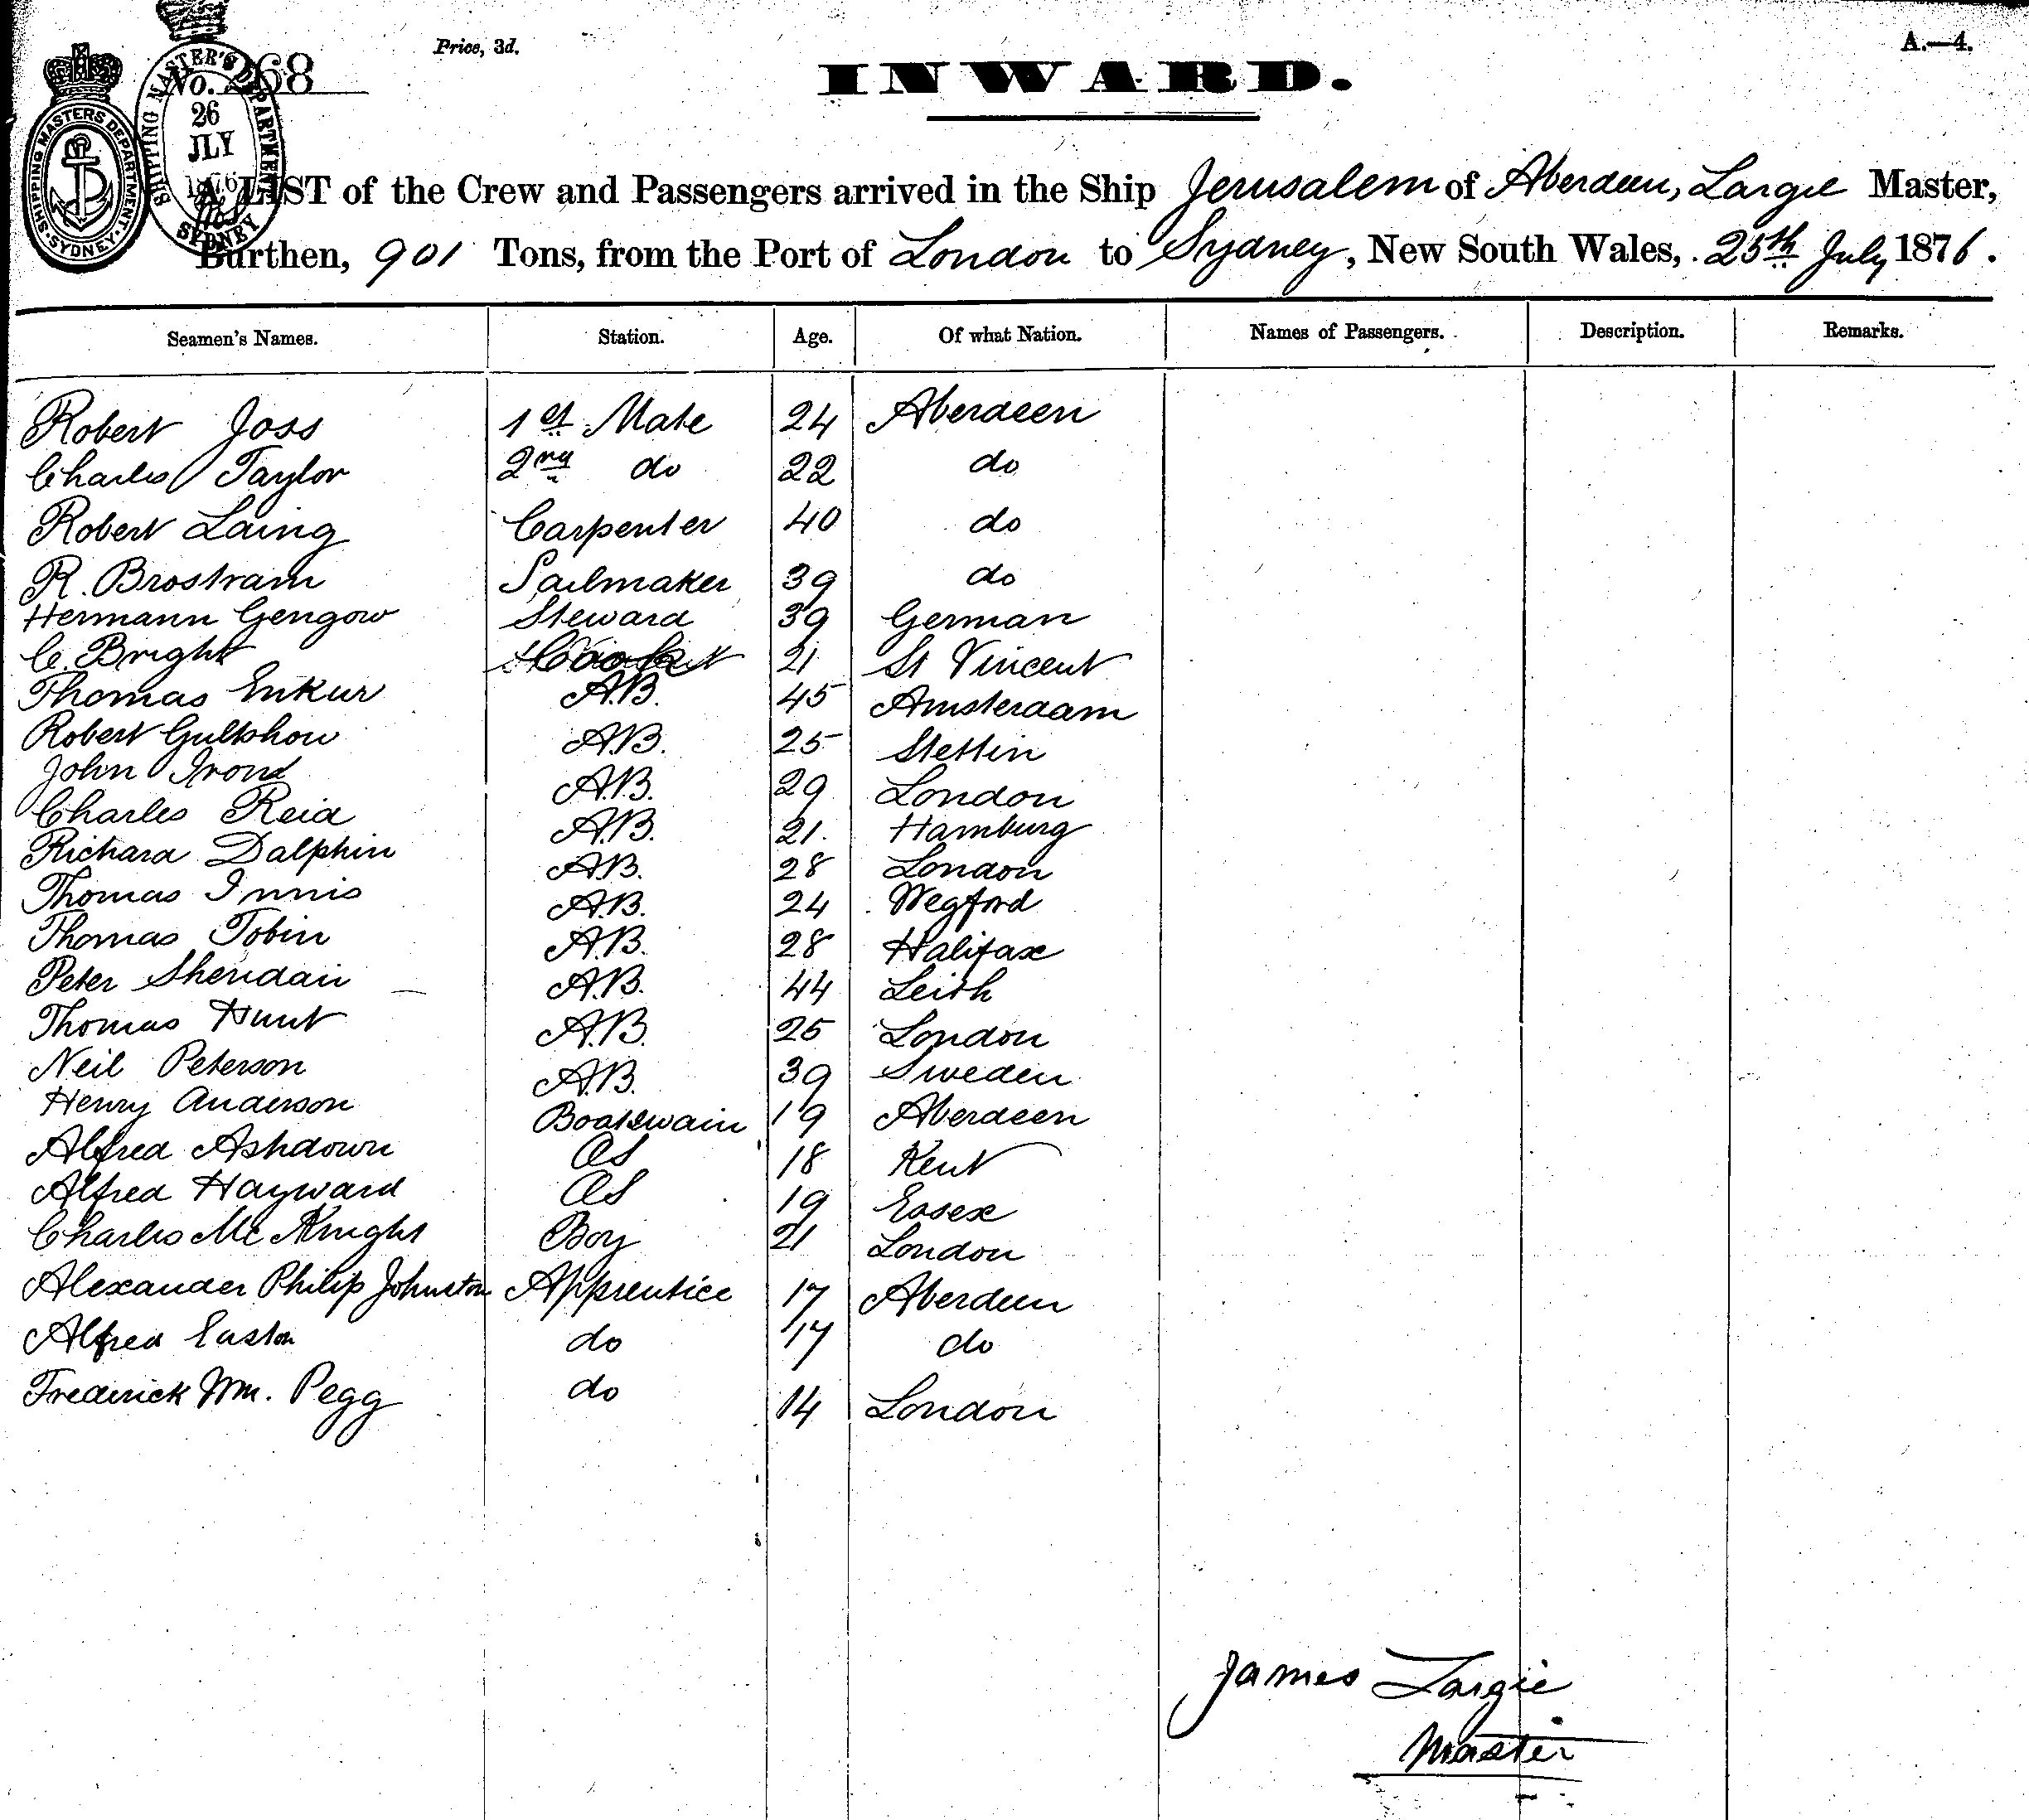 No. 268
Price, 3d.
A.—4.
SHIPPING MASTERS DEPARTMENT SYDNEY
SHIPPING MASTER'S DEPARTMENT SYDNEY
26
JLY
1876
INWARD.
A LIST of the Crew and Passengers arrived in the Ship Jerusalem of Aberdeen, Largie Master,
Burthen, 901 Tons, from the Port of London to Sydney, New South Wales, 25th July 1876.
Seamen's Names. Station. Age. Of what Nation. Names of Passengers. Description. Remarks.
Robert Joss 1st Mate 24 Aberdeen
Charles Taylor 2nd do 22 do
Robert Laing Carpenter 40 do
R. Brostram Sailmaker 39 do
Hermann Gengow Steward 39 German
C. Bright Cook 21 St Vincent
Thomas Enkur A.B. 45 Amsterdam
Robert A.B. 25 Stettin
John Irond A.B. 29 London
Charles Reid A.B. 21 Hamburg
Richard Dalphin A.B. 28 London
Thomas Innis A.B. 24 Wegford
Thomas Tobin A.B. 28 Halifax
Peter Sheridan A.B. 44 Leith
Thomas Hunt A.B. 25 London
Neil Peterson A.B. 39 Sweden
Henry Anderson Boatswain 19 Aberdeen
Alfred Ashdown OS 18 Kent
Alfred Hayward OS 19 Essex
Charles Mc Knight Boy 21 London
Alexander Philip Johnston Apprentice 17 Aberdeen
Alfred Easton do 17 do
Frederick Wm. Pegg do 14 London
James Largie
Master